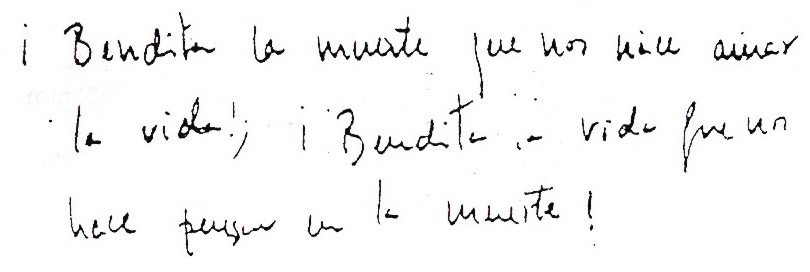 ¡Bendita la muerte que nos hace amar
la vida!, ¡Bendita la vida que nos
hace pensar en la muerte!